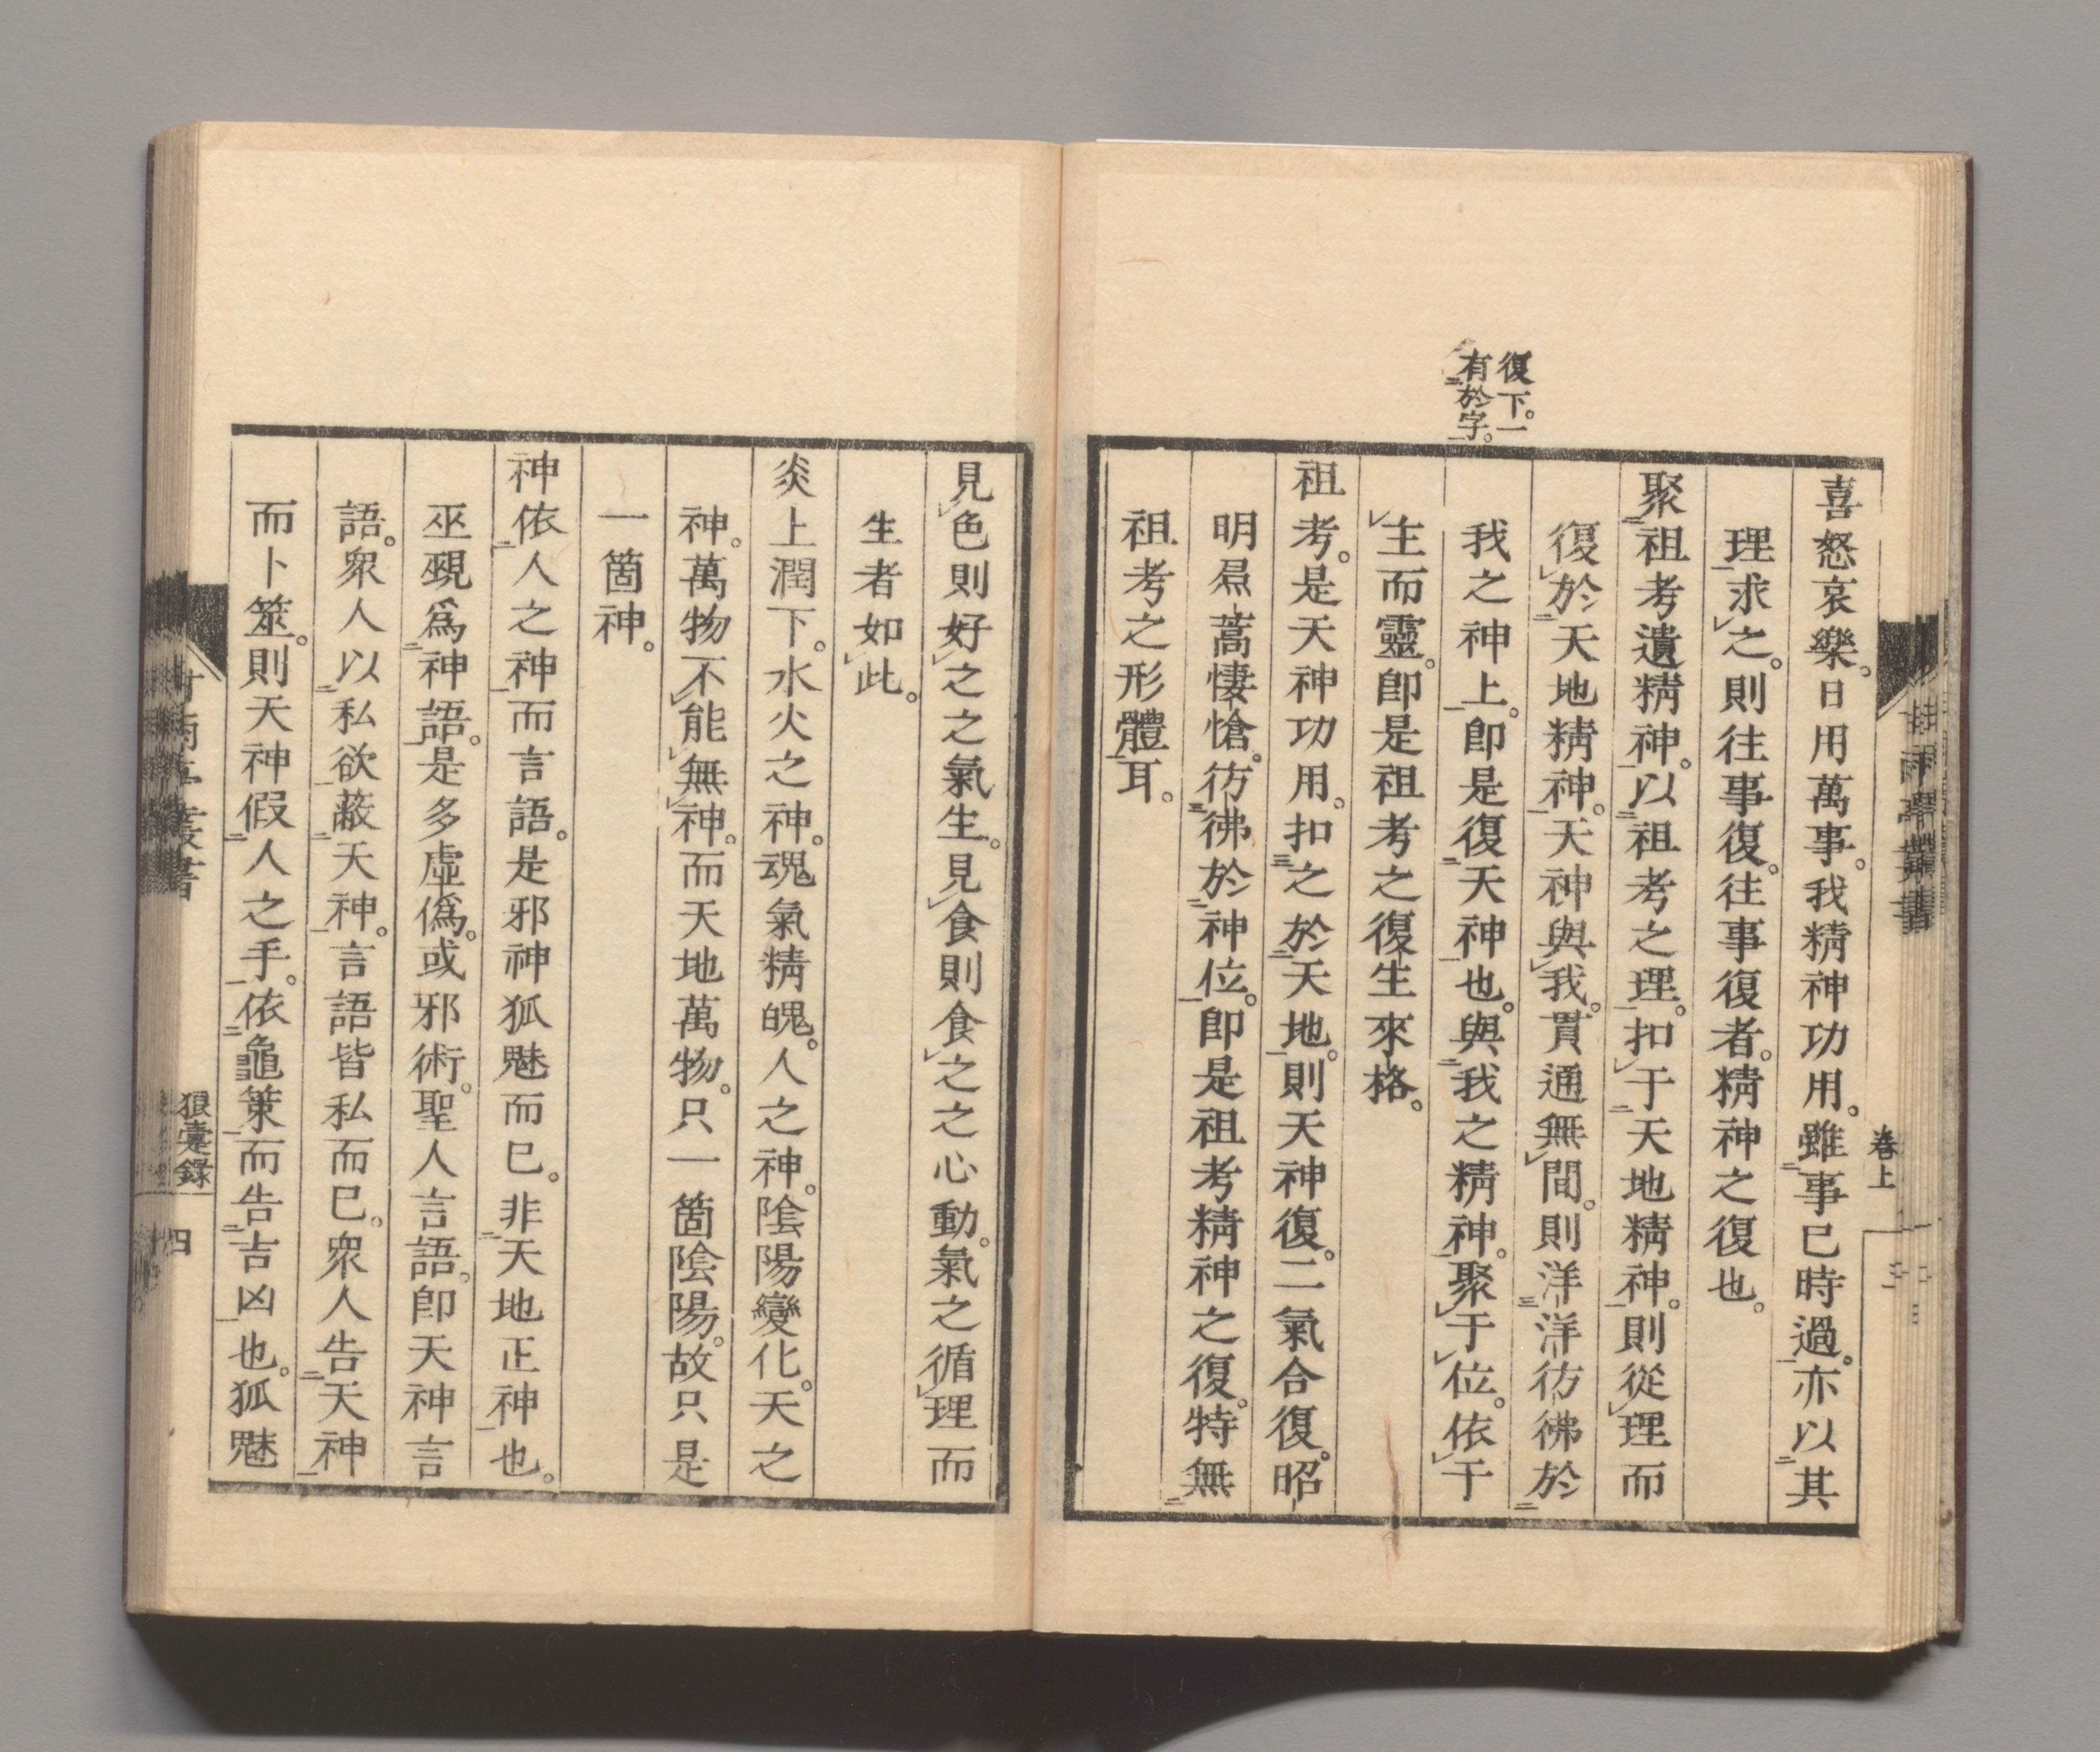 卷上
喜怒哀樂。日用萬事。我精神功用。雖事已時過。亦以其
理求之。則往事復。往事復者。精神之復也。
聚祖考遺精神。以祖考之理。扣于天地精神。則從理而
復於天地精神。天神與我。貫通無間。則洋洋彷彿於
我之神上。卽是復天神也。與我之精神。聚于位。依于
主而靈。卽是祖考之復生來格。
復下。一
有於字。
祖考。是天神功用。扣之於天地。則天神復。二氣合復。昭
明焄蒿悽愴。彷彿於神位。卽是祖考精神之復。特無
祖考之形體耳。
見色則好之之氣生。見食則食之之心動。氣之循理而
生者如此。
炎上潤下。水火之神。魂氣精魄。人之神。陰陽變化。天之
神。萬物不能無神。而天地萬物。只一箇陰陽。故只是
一箇神。
神依人之神而言語。是邪神狐魅而已。非天地正神也。
巫覡爲神語。是多虛僞。或邪術。聖人言語。卽天神言
語。衆人以私欲蔽天神。言語皆私而已。衆人告天神
而卜筮。則天神假人之手。依龜策而告吉凶也。狐魅
狼疐錄
四